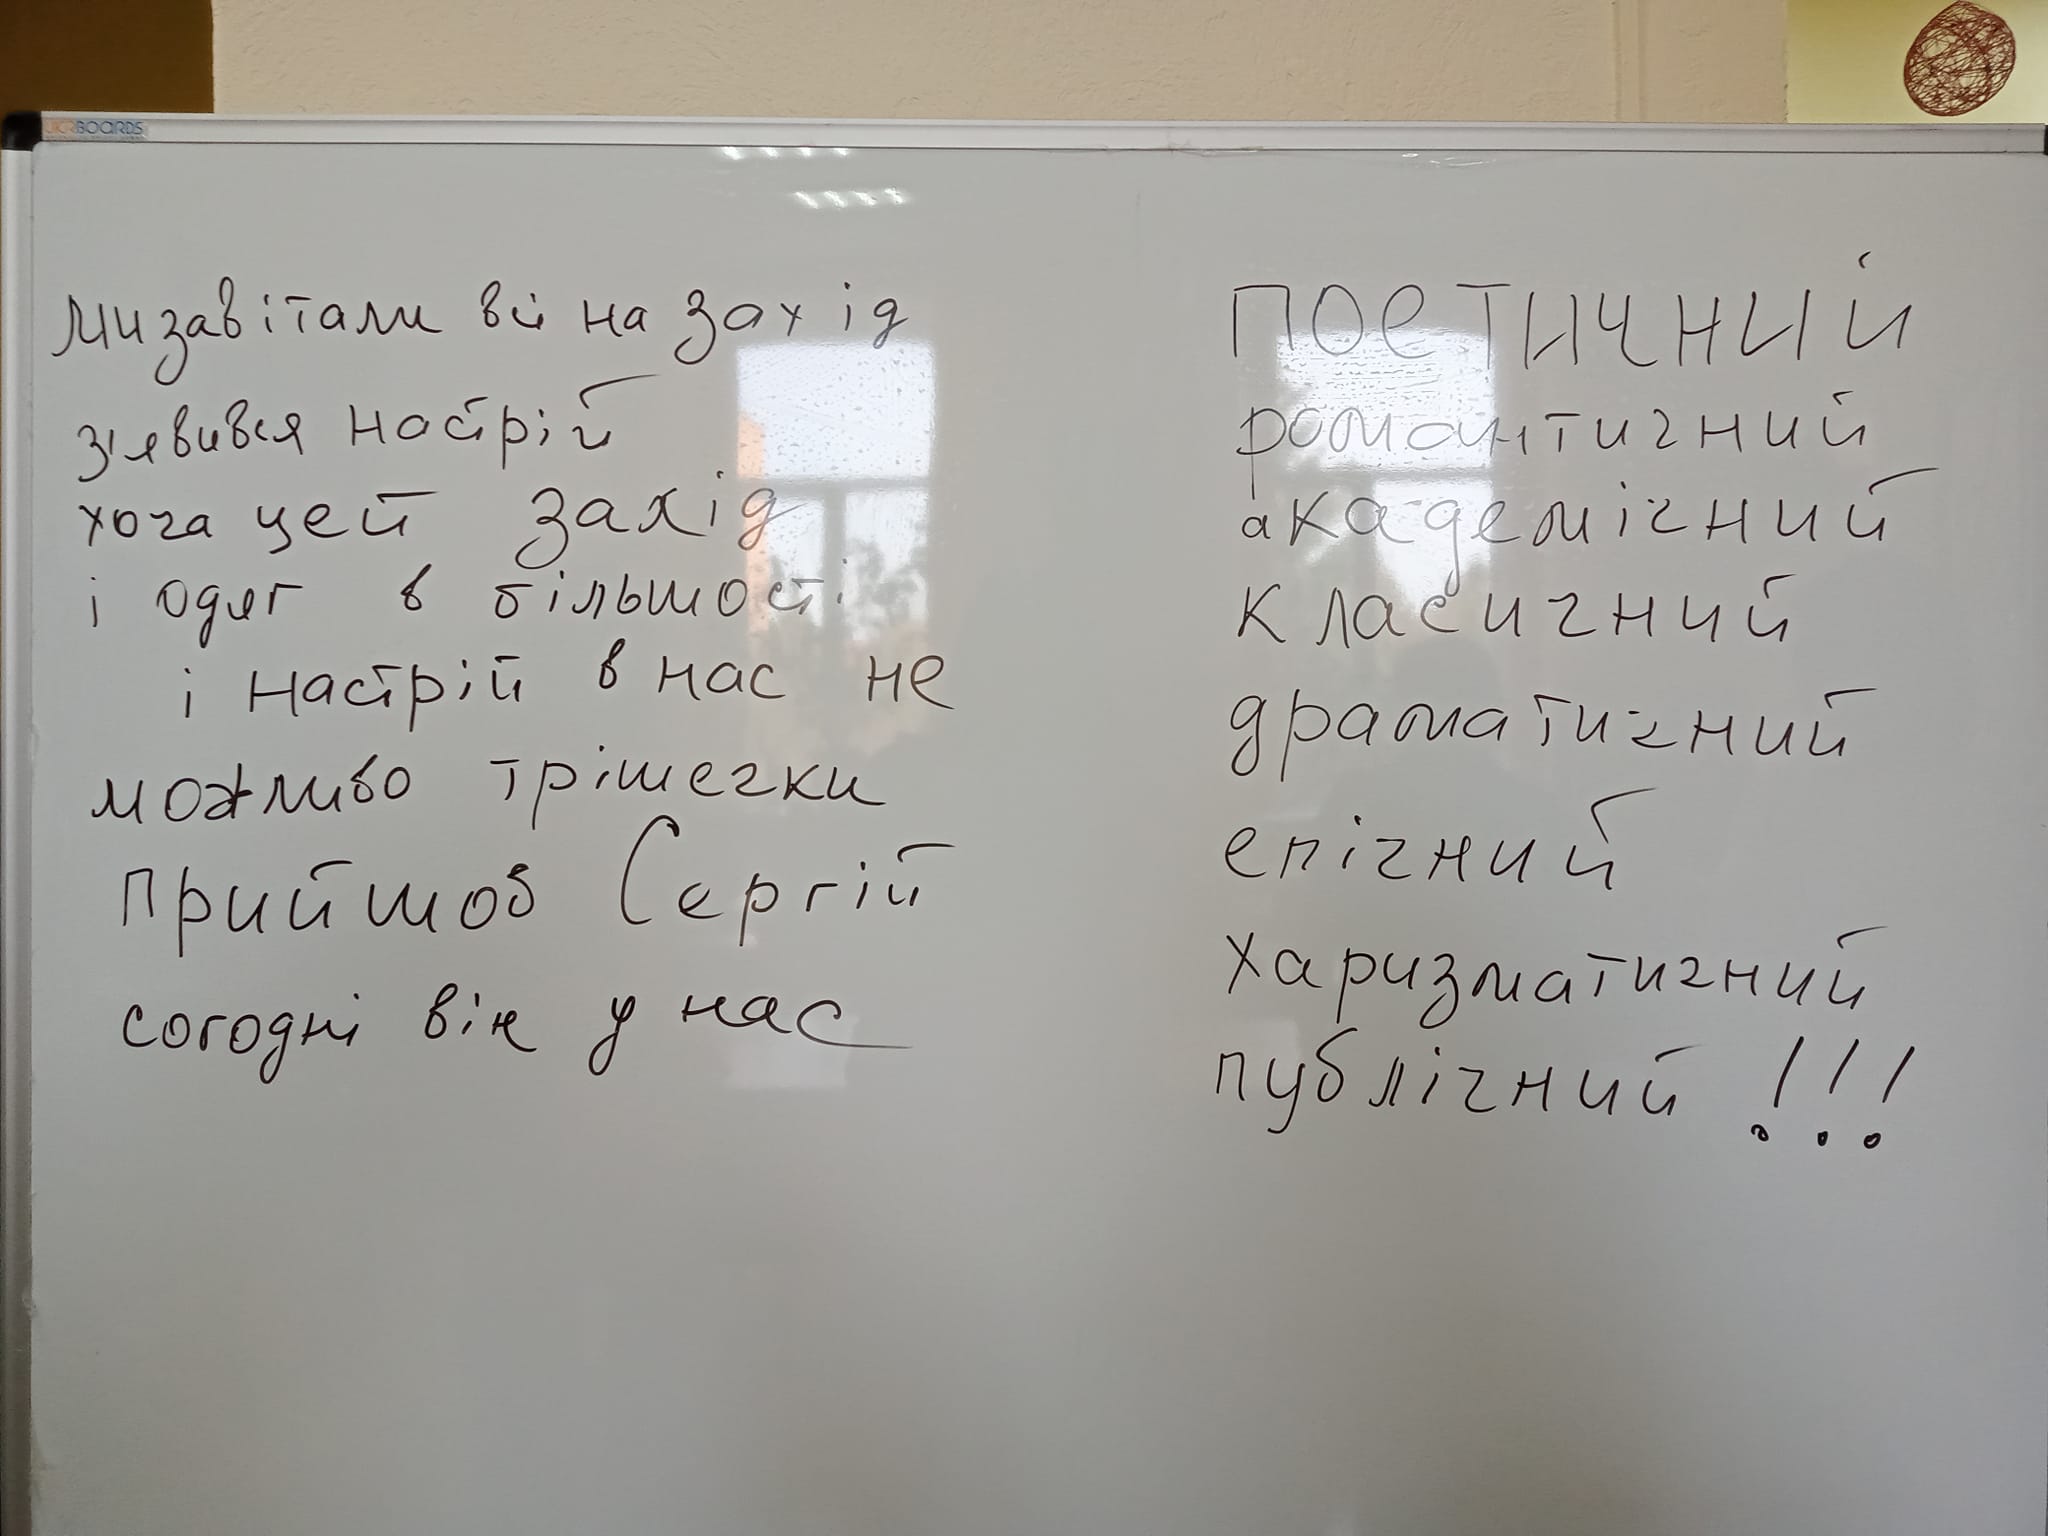 UKRBOARDS
ми завітали всі на захід
з'явився настрій
хоча цей захід
і одяг в більшості
і настрій в нас не
можливо трішечки
прийшов Сергій
согодні він у нас
ПОЕТИЧНИЙ
романтичний
академічний
класичний
драматичний
епічний
харизматичний
публічний !!!